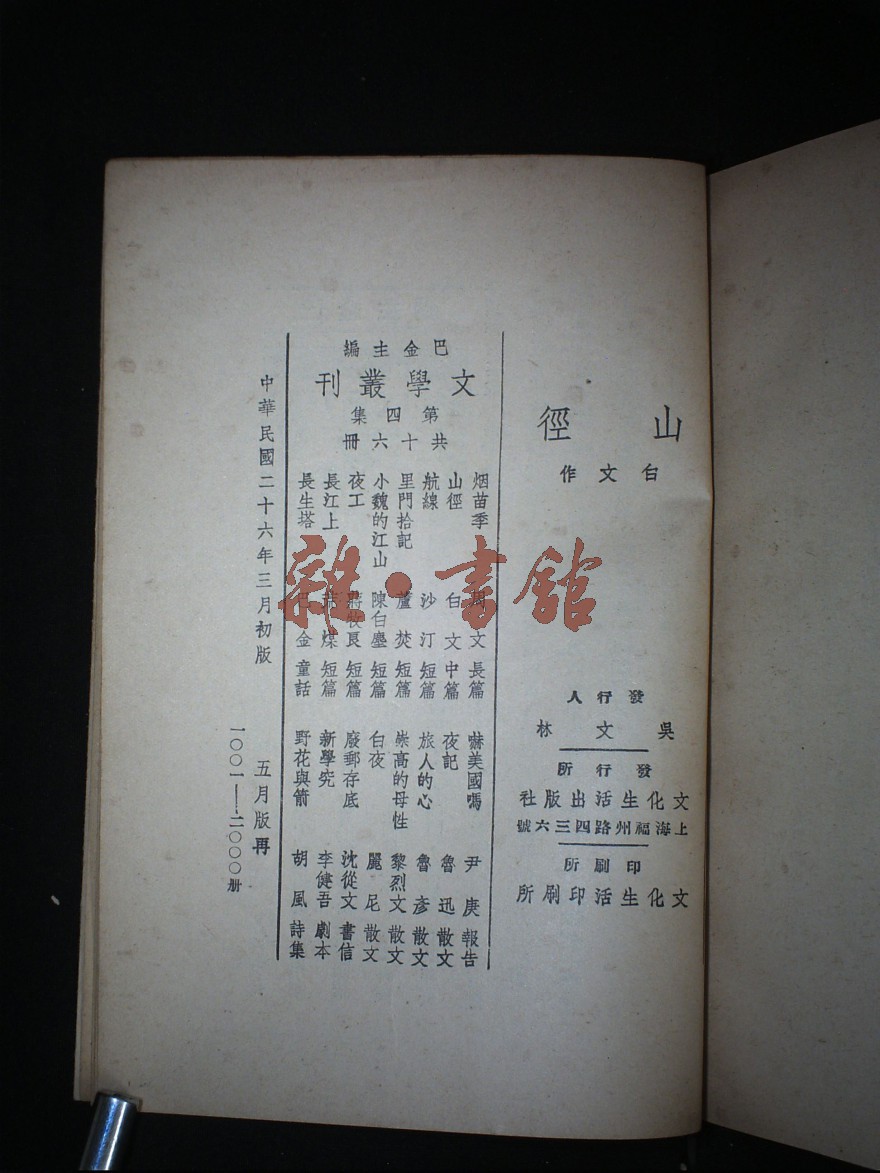 山徑
白文作
發行人
吳文林
發行所
文化生活出版社
上海福州路四三六號
印刷所
文化生活印刷所
巴金主編
文學叢刊
第四集
共十六冊
烟苗季 周文 長篇
山徑 白文 中篇
航線 沙汀 短篇
里門拾記 蘆焚 短篇
小魏的江山 陳白塵 短篇
夜工 蔣牧良 短篇
長江上 荒煤 短篇
長生塔 巴金 童話
嚇美國嗎 尹庚 報告
夜記 魯迅 散文
旅人的心 魯彥 散文
崇高的母性 黎烈文 散文
白夜 麗尼 散文
廢郵存底 沈從文 書信
新學究 李健吾 劇本
野花與箭 胡風 詩集
中華民國二十六年三月初版
五月版再
一〇〇一——二〇〇〇册
雜·書館